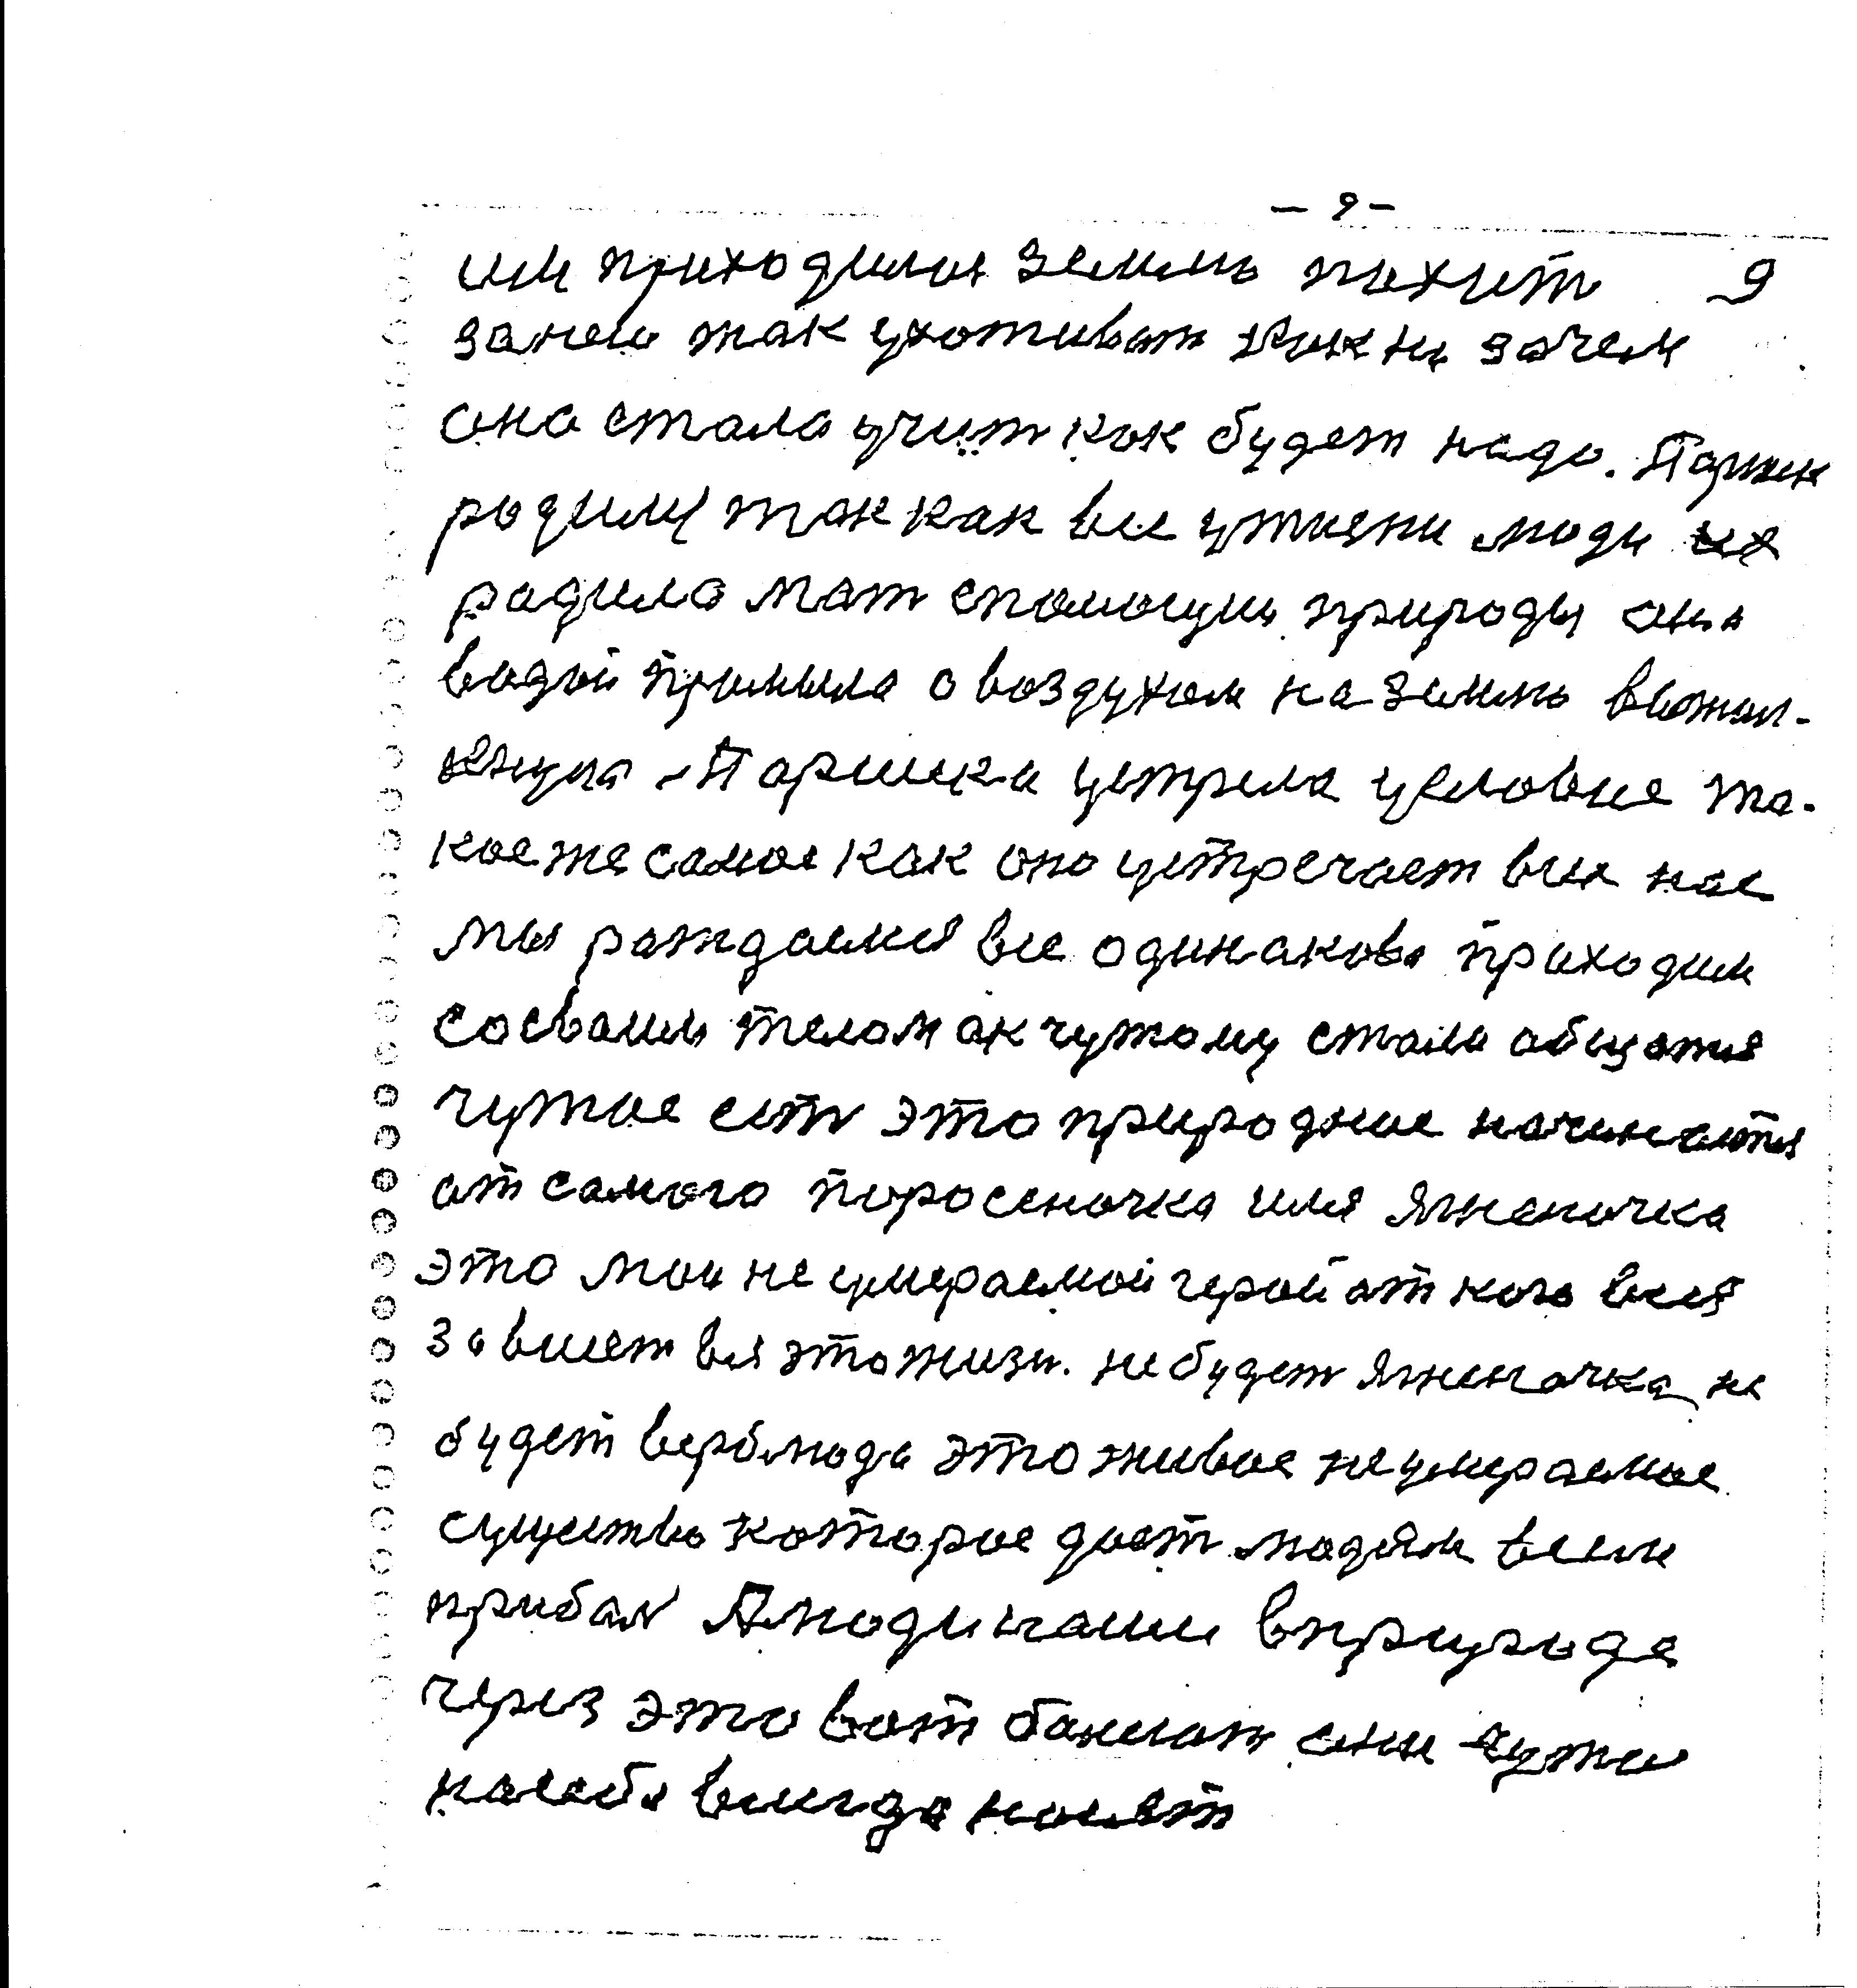 — 9 —
им приходилос землю пахит 9
занею так ухотиват как ни зачем
она стала учит как будет надо. Паршек
родилс так как все ужизни люди их
радила мат спомощю природы она
водой промыла о воздухом на землю вытол-
кнула. Паршека устрела условие та-
кое же самое как оно устречает всех нас
мы раждаемся все одинаково приходим
сосваим телом ак чужому стали общатся
чужое ест это природные начинаются
от самого поросеночка или ягненочка
это мои не умираемой герой от кого вся
зависет вся это жизн. не будет ягненочка не
будет верблюда это живое неумираемое
существо которое дает людям всем
прибал А люди наши вприроде
через это вот балеют они чужо
насебе всигда носят